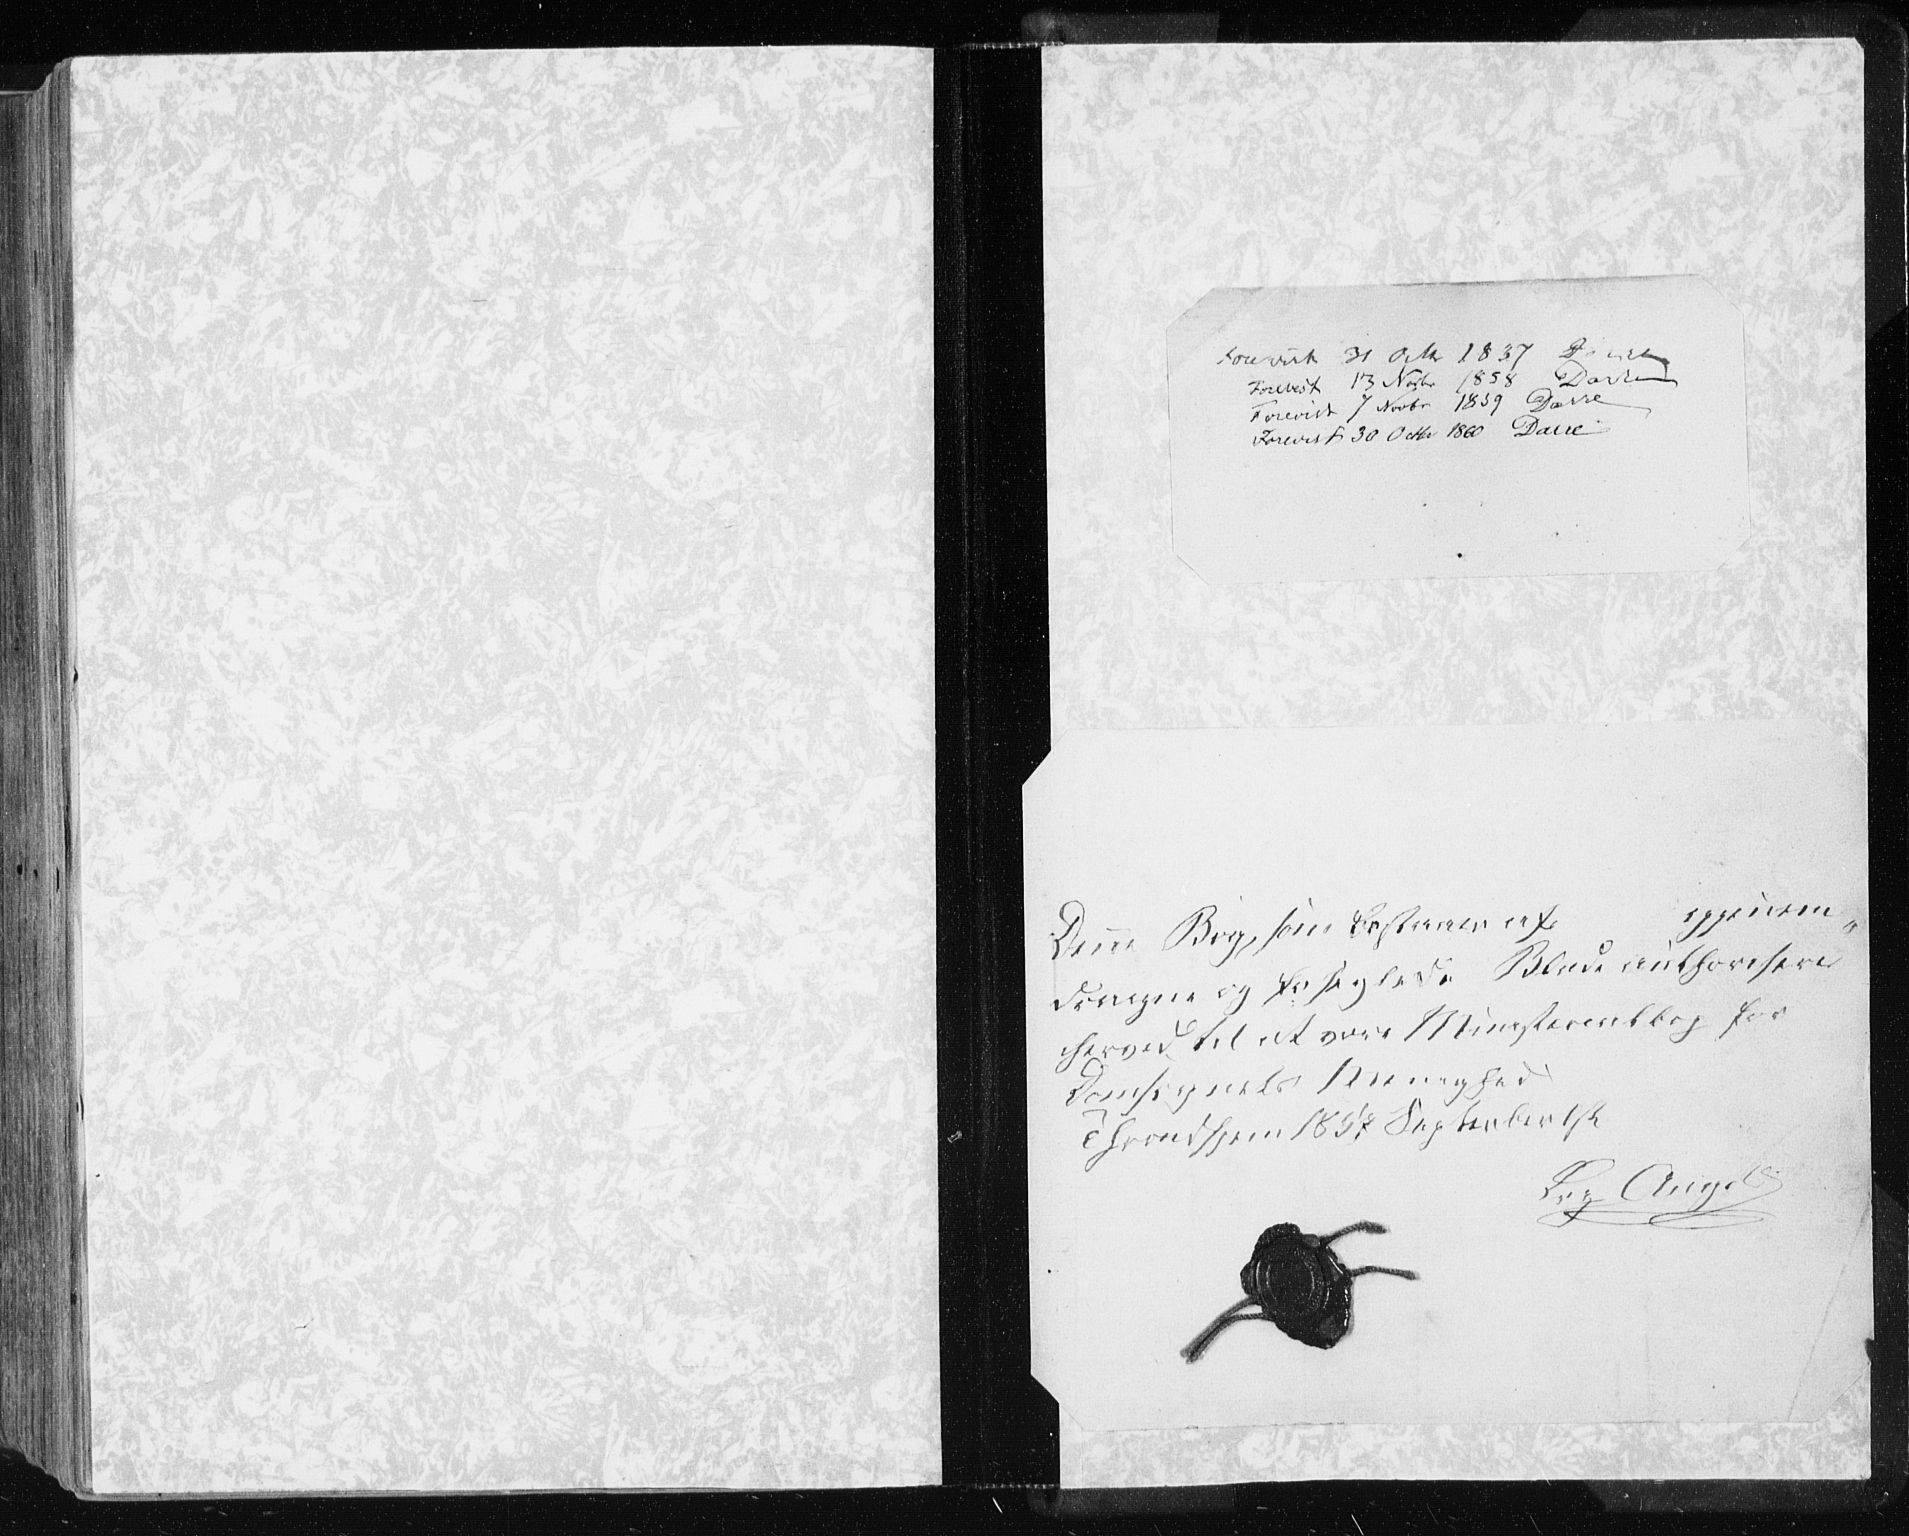 Forevist 31 Octbr 1837 Darre
Forevist 13 Novbr 1858 Darre
Forevist 7 Novbr 1859 Darre
Forevist 30 Octbr 1860 Darre
Denne Bog, som bestaaer af igjennem„
dragne og forseglede Blade authoriseres
herved til at være Ministerialbog for
Domsognets Menighed
Throndhjem 1857 September 1ste
Angel